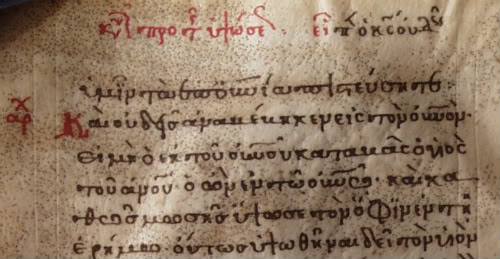 κυ προ τ ὑψώσε· εἶπ ὁ κς οὐδεὶ
ὑμῖν τὰ ἐπουνια πιστεύσητε·
αρχ Καὶ οὐδεὶς ἀναβέβηκεν εἰς τὸν οὐνὸν·
εἰ μὴ ὁ ἐκ τοῦ οὐνοῦ καταβὰς ὁ υἱὸς
τοῦ ἀνου· ὁ ὢν ἐν τῶ οὐνῶ· καὶ κα
θὼς μωσῆς ὕψωσε τὸν ὄφιν ἐν τῆ
ἐρήμω· οὕτως ὑψωθῆναι δεῖ τὸν υἱὸν